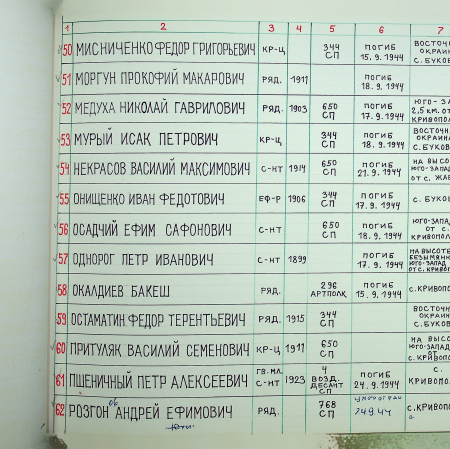 1 2 3 4 5 6 7
50 МИСНИЧЕНКО ФЕДОР ГРИГОРЬЕВИЧ КР-Ц 344 СП ПОГИБ 15.9.1944 ВОСТОЧН ОКРАИН С. БУКОВ
51 МОРГУН ПРОКОФИЙ МАКАРОВИЧ РЯД. 1911 ПОГИБ 18.9.1944
52 МЕДУХА НИКОЛАЙ ГАВРИЛОВИЧ РЯД. 1903 650 СП ПОГИБ 17.9.1944 ЮГО-ЗА 2,5 КМ. ОТ КРИВОПО
53 МУРЫЙ ИСАК ПЕТРОВИЧ КР-Ц 344 СП ПОГИБ 18.9.1944 ВОСТОЧН ОКРАИН С. БУКОВ
54 НЕКРАСОВ ВАСИЛИЙ МАКСИМОВИЧ С-НТ 1914 650 СП ПОГИБ 21.9.1944 НА ВЫСО ЮГО-ЗАПАД ОТ С. ЖАБ
55 ОНИЩЕНКО ИВАН ФЕДОТОВИЧ ЕФ-Р 1906 344 СП ПОГИБ 17.9.1944 С. БУКОВ
56 ОСАДЧИЙ ЕФИМ САФОНОВИЧ С-НТ 650 СП ПОГИБ 18.9.1944 ЮГО-ЗАПА ОТ С. КРИВОПОЛ
57 ОДНОРОГ ПЕТР ИВАНОВИЧ С-НТ 1899 ПОГИБ 17.9.1944 НА ВЫСОТЕ БЕЗЫМЯН ЮГО-ЗАПАД ОТ С. КРИВОП
58 ОКАЛДИЕВ БАКЕШ РЯД. 296 АРТПОЛК ПОГИБ 15.9.1944 С. КРИВОП
59 ОСТАМАТИН ФЕДОР ТЕРЕНТЬЕВИЧ РЯД. 1915 344 СП ВОСТОЧН ОКРАИН С. БУКОВ
60 ПРИТУЛЯК ВАСИЛИЙ СЕМЕНОВИЧ КР-Ц 1911 650 СП НА ВЫСО ЮГО-ЗАПАД ОТ С. КРИВОП
61 ПШЕНИЧНЫЙ ПЕТР АЛЕКСЕЕВИЧ ГВ. МЛ. С-НТ 1923 4 ВОЗД. ДЕСАНТ СП ПОГИБ 24.9.1944 С. КРИВОПОЛ
62 РОЗГОН АНДРЕЙ ЕФИМОВИЧ РЯД. 768 СП 24.9.44 С. КРИВОПО